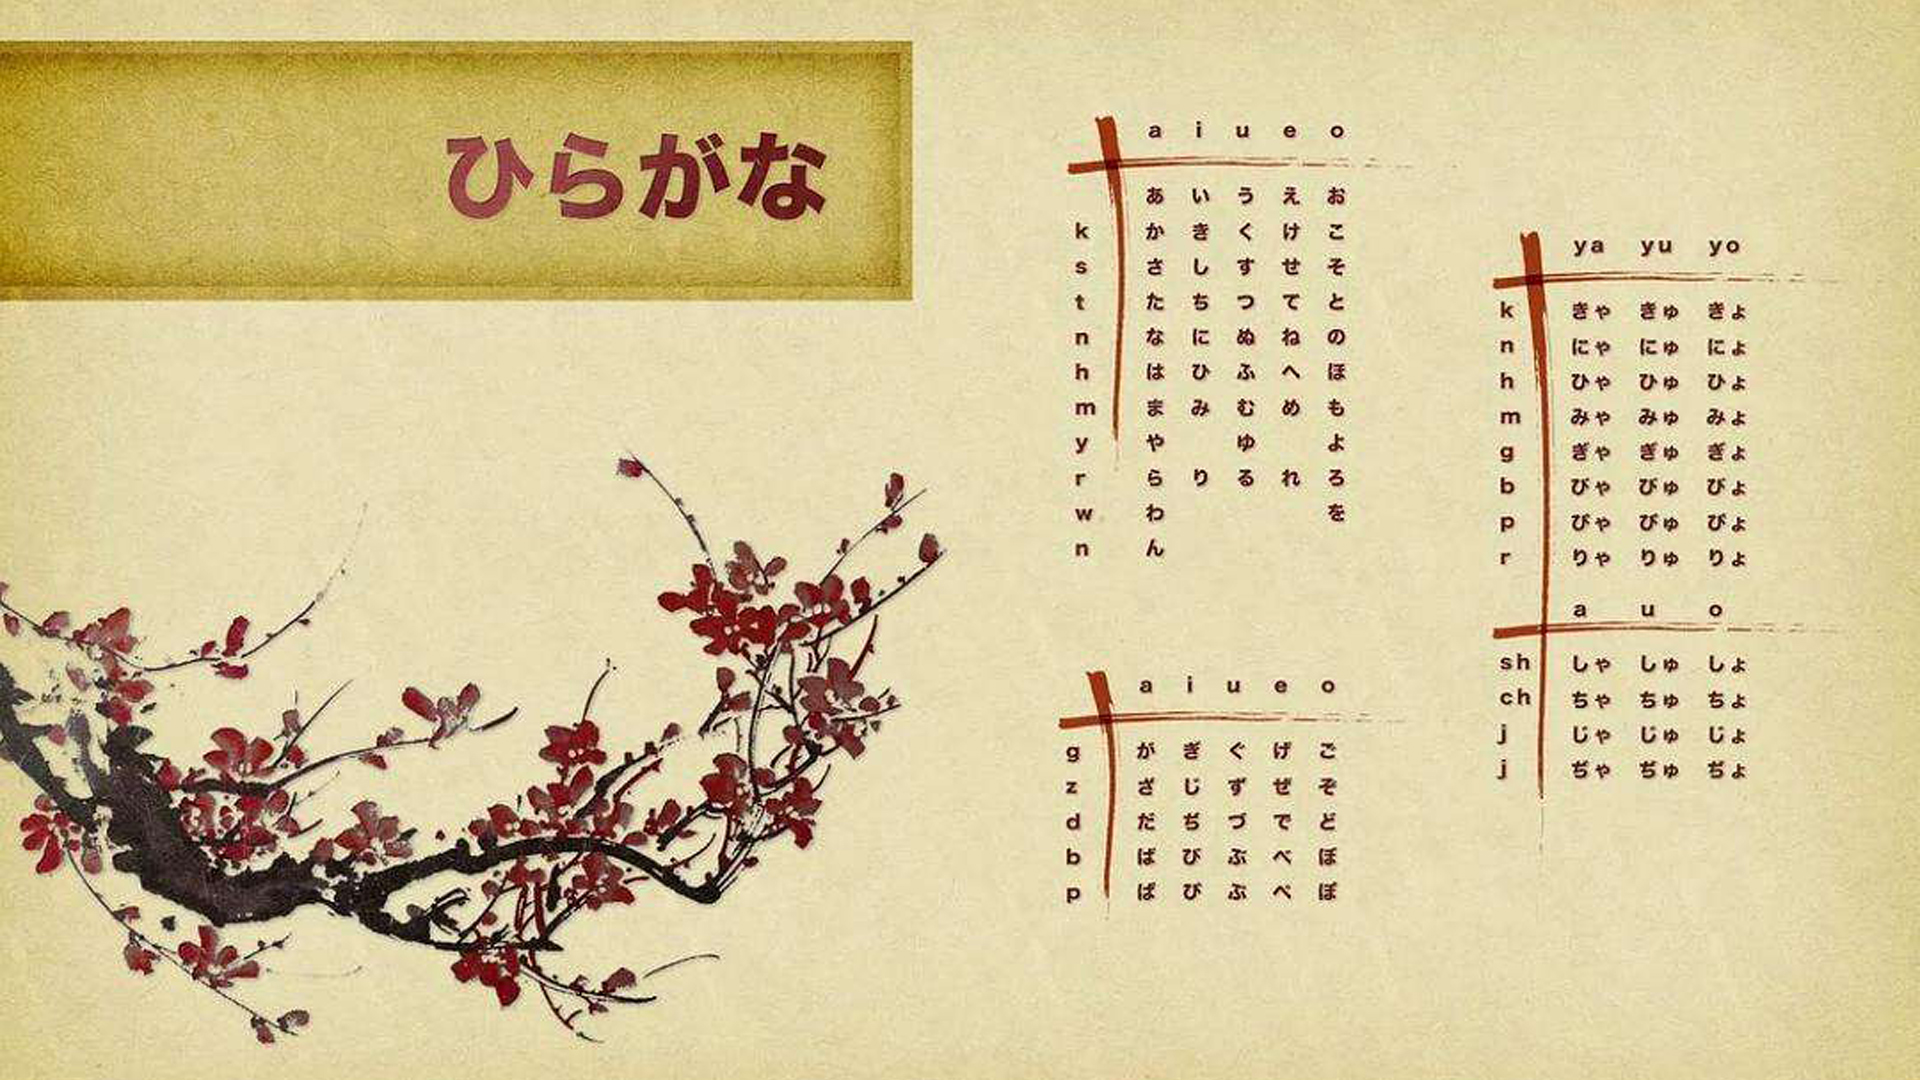 ひらがな
a i u e o
あ い う え お
k か き く け こ
s さ し す せ そ
t た ち つ て と
n な に ぬ ね の
h は ひ ふ へ ほ
m ま み む め も
y や ゆ よ
r ら り る れ ろ
w わ を
n ん
a i u e o
g が ぎ ぐ げ ご
z ざ じ ず ぜ ぞ
d だ ぢ づ で ど
b ば び ぶ べ ぼ
p ぱ ぴ ぷ ぺ ぽ
ya yu yo
k きゃ きゅ きょ
n にゃ にゅ にょ
h ひゃ ひゅ ひょ
m みゃ みゅ みょ
g ぎゃ ぎゅ ぎょ
b びゃ びゅ びょ
p ぴゃ ぴゅ ぴょ
r りゃ りゅ りょ
a u o
sh しゃ しゅ しょ
ch ちゃ ちゅ ちょ
j じゃ じゅ じょ
j ぢゃ ぢゅ ぢょ